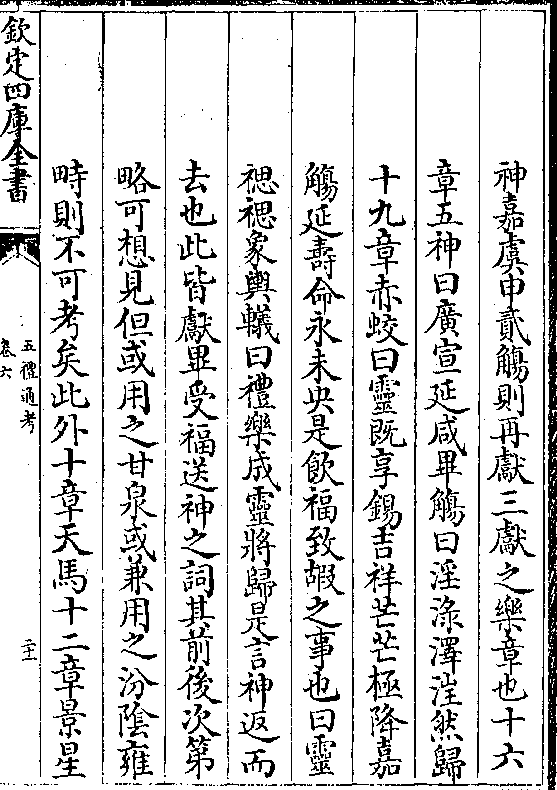 神嘉虞申貳觴則再獻三獻之樂章也十六
章五神曰廣宣延咸畢觴曰淫淥澤洼然歸
十九章赤蛟曰靈既享錫吉祥芒芒極降嘉
觴延壽命永未央是飲福致嘏之事也曰靈
禗禗象輿轙曰禮樂成靈將歸是言神返而
去也此皆獻畢受福送神之詞其前後次第
略可想見但或用之甘泉或兼用之汾陰雍
畤則不可考矣此外十章天馬十二章景星
欽定四庫全書
五禮通考
卷六
二十一